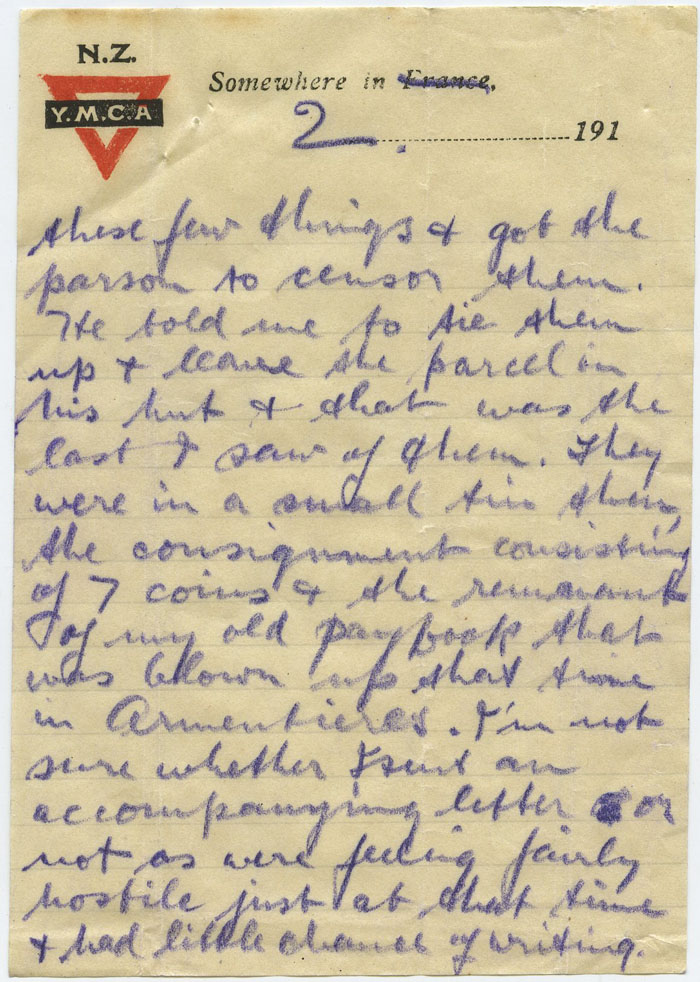 N.Z.
Y.M.C.A
Somewhere in France,
2. 191
these few things & got the
parson to censor them.
He told me to tie them
up & leave the parcel in
his hut & that was the
last I saw of them. They
were in a small tin then,
the consignment consisting
of 7 coins & the remnant
of my old paybook that
was blown up that time
in Armentieres. I'm not
sure whether I sent an
accompanying letter or
not as were feeling fairly
hostile just at that time
& had little chance of writing.